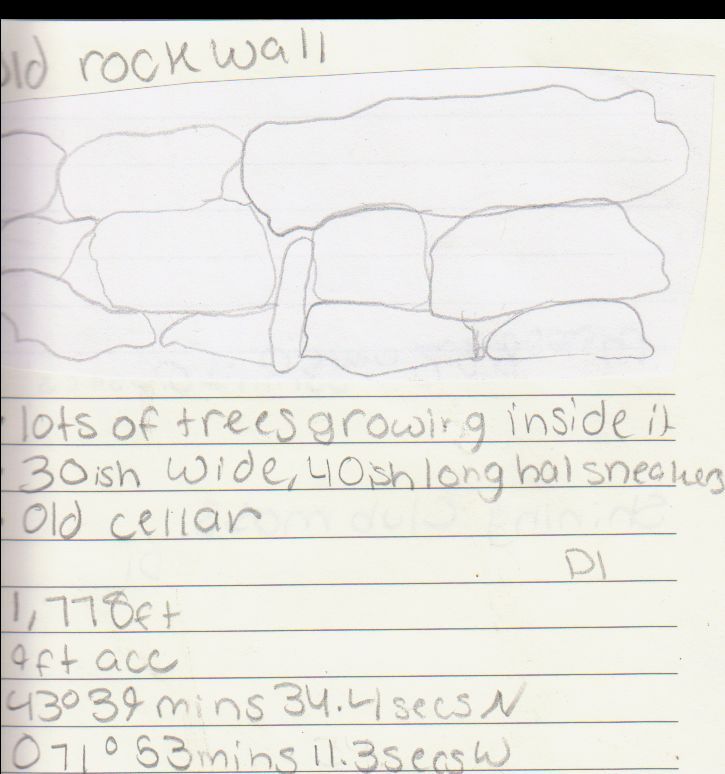 old rock wall
• lots of trees growing inside it
• 30ish wide, 40ish long hal sneakers
• Old cellar
D1
1,778ft
9ft acc
43° 39 mins 34.4 secs N
071° 53 mins 11.3 secs W